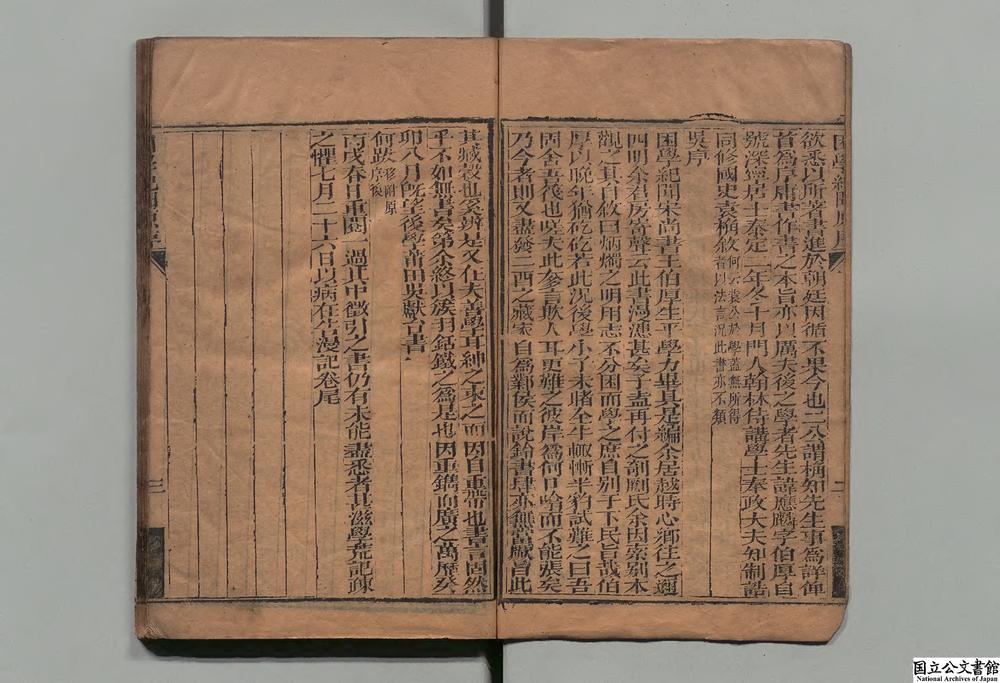 困學紀聞原序
欲悉以所著書進於朝廷因循不果今也二公謂桷知先生事為詳俾
首爲序庸書作書之本旨亦以厲夫後之學者先生諱應麟字伯厚自
號深寧居士泰定二年冬十月門人翰林侍講學士奉政大夫知制誥
同修國史袁桷敘何云袁公於學蓋無所得
者以法言況此書亦不類
吳序
困學紀聞宋尚書王伯厚生平學力畢具是編余居越時心鄉往之適
四明余君房寄聲云此書漫漶甚矣子盍再付之剞劂氏余因索別本
觀之其自敘曰炳燭之明用志不分困而學之庶自別于下民旨哉伯
厚以晚年猶矻矻若此況後學小子未睹全牛輒慚半豹試難之曰吾
固舍吾伐也嗟夫此爹言欺人耳更難之彼岸爲何口呿而不能張矣
乃今者則又盡發二酉之藏家自爲鄴侯而說鈴書肆亦無當厥旨此
二
其臧穀也奚辨是又仕夫善學耳紳之束之而因自重帶也書言固然
乎不如無書矣第余終以簇羽砥鐵之爲是也因重鐫而廣之萬歷癸
卯八月旣望後學莆田吳獻台書
何跋移附原
序後
丙戌春日重閱一過其中徵引之書仍有未能盡悉者甚滋學荒記疎
之懼七月二十六日以病在告漫記卷尾
三
国立公文書館
National Archives of Japan